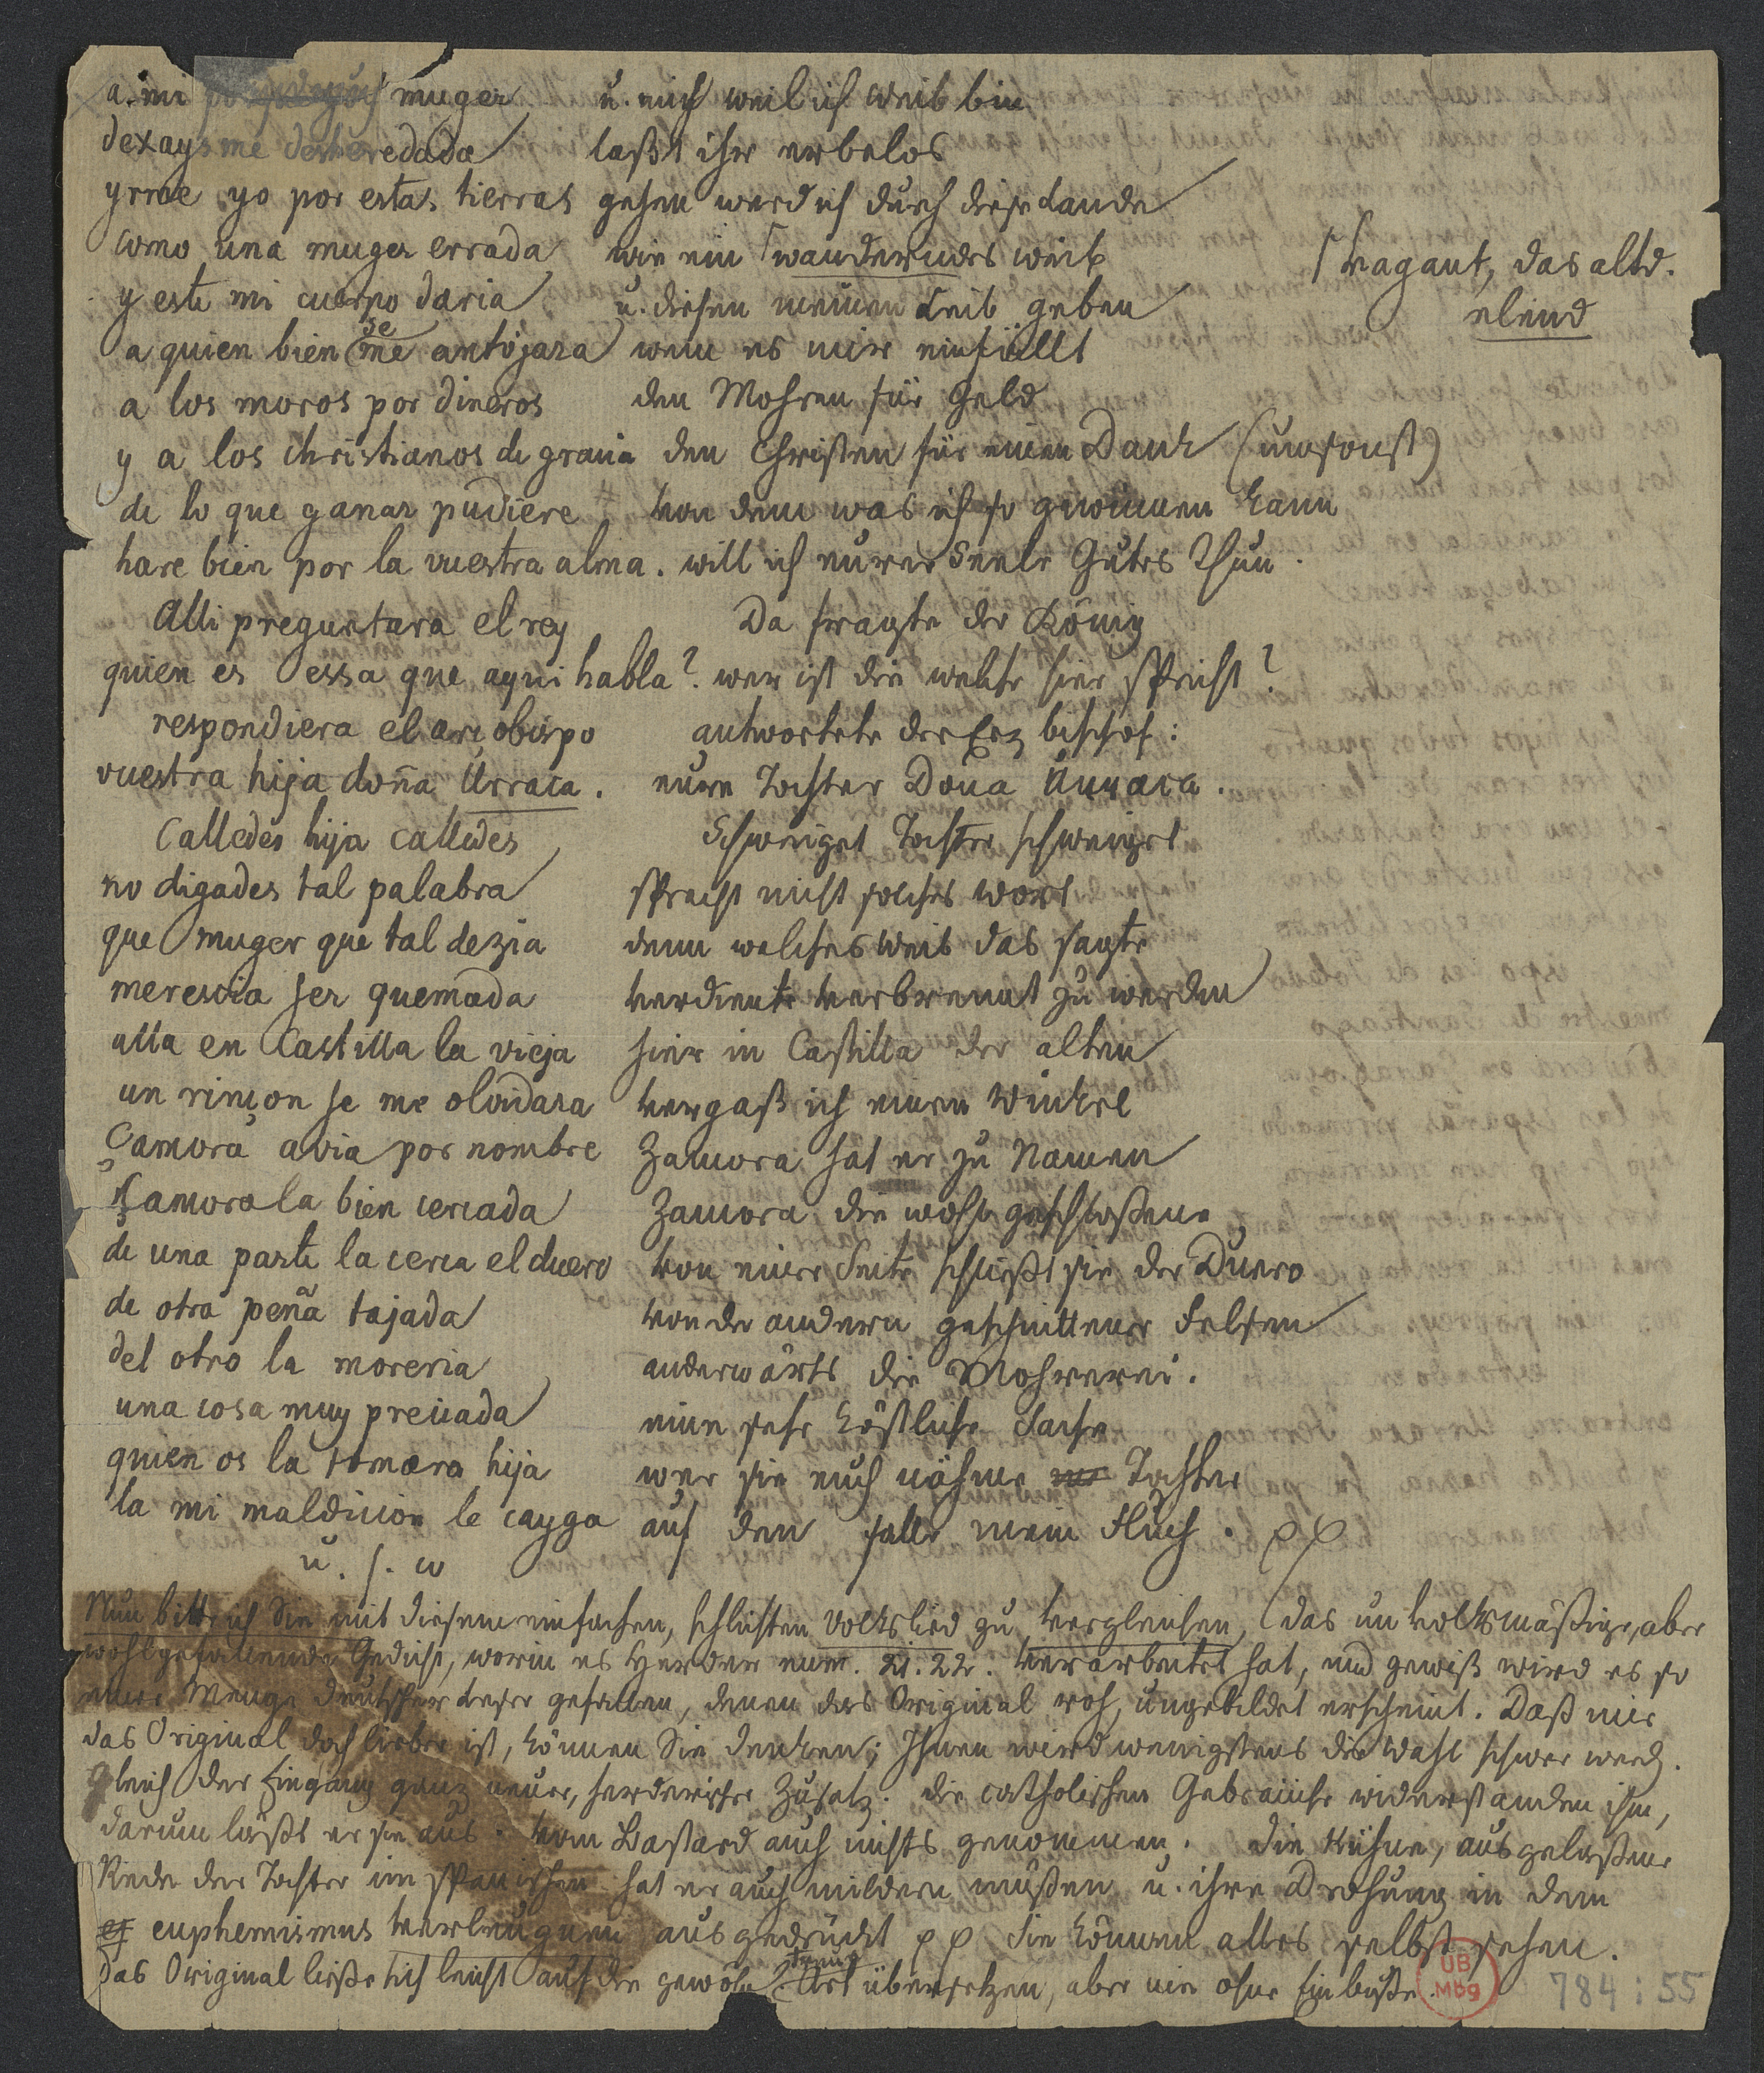 a mi muger u. mich weil ich Weib bin
dexays me desheredada laßt ihr erbelos
yrme yo por estas tierras gehen werd ich durch diese Lande
como una muger errada wie ein ⌈wanderndes Weib
⌈vagant, das altd.
y este mi cuerpo daria u. diesen meinen Leib geben
elend
a quien bien me se antojara wem es mir einfällt
a los moros por dineros den Mohren für Geld
y a los christianos de gracia den Christen für einen Dank (umsonst)
de lo que ganar pudiere von dem was ich so gewinnen kann
hare bien por la vuestra alma. will ich eurer Seele Gutes thun.
Alli preguntara el rey Da fragte der König
quien es essa que aqui habla? wer ist die welche hier spricht?
respondiera el arçobispo antwortete der Erzbischof:
vuestra hija doña Urraca. eure Tochter Doña Urraca.
Calledes hija calledes Schweiget Tochter schweiget
no digades tal palabra sprecht nicht solches Wort
que muger que tal dezia denn welches Weib das sagte
merescia ser quemada verdiente verbrennt zu werden
alla en Castilla la vieja hier in Castilla der alten
un rincon se me olvidara vergaß ich einen Winkel
Çamora avia por nombre Zamora hat er zu Namen
Çamora la bien cercada Zamora die wohl geschloßene
de una parte la cerca el duero von einer Seite schließt sie der Duero
de otra peña tajada von der andern geschnittener Felsen
del otro la moreria anderwärts die Mohrerei.
una cosa muy preciada eine sehr köstliche Sache
quien os la tomara hija wer sie euch nähme Tochter
la mi maldicion le cayga auf den falle mein Fluch. pp
u. s. w
Nun bitte ich Sie mit diesem einfachen, schlichten Volkslied zu vergleichen, das unvolksmäßige, aber
wohlgefallende Gedicht, worin es Herder num. 21. 22. verarbeitet hat, und gewiß wird es so
einer Menge deutscher Leser gefallen, denen das Original roh, ungebildet erscheint. Daß mir
das Original doch lieber ist, können Sie denken; Ihnen wird wenigstens die Wahl schwer werd.
Gleich der Eingang ganz neuer, herderischer Zusatz. die catholischen Gebräuche widerstanden ihm,
darum läßt er sie aus. vom Bastard auch nichts genommen. die kühne, ausgelaßene
Rede der Tochter im spanischen hat er auch mildern müßen u. ihre Drohung in dem
euphemismus verleugnen ausgedrückt pp Sie können alles selbst sehen.
Das Original ließe sich leicht auf die gewöhn Art übersetzen, aber nie ohne Einbuße.
UB Mbg
784:55